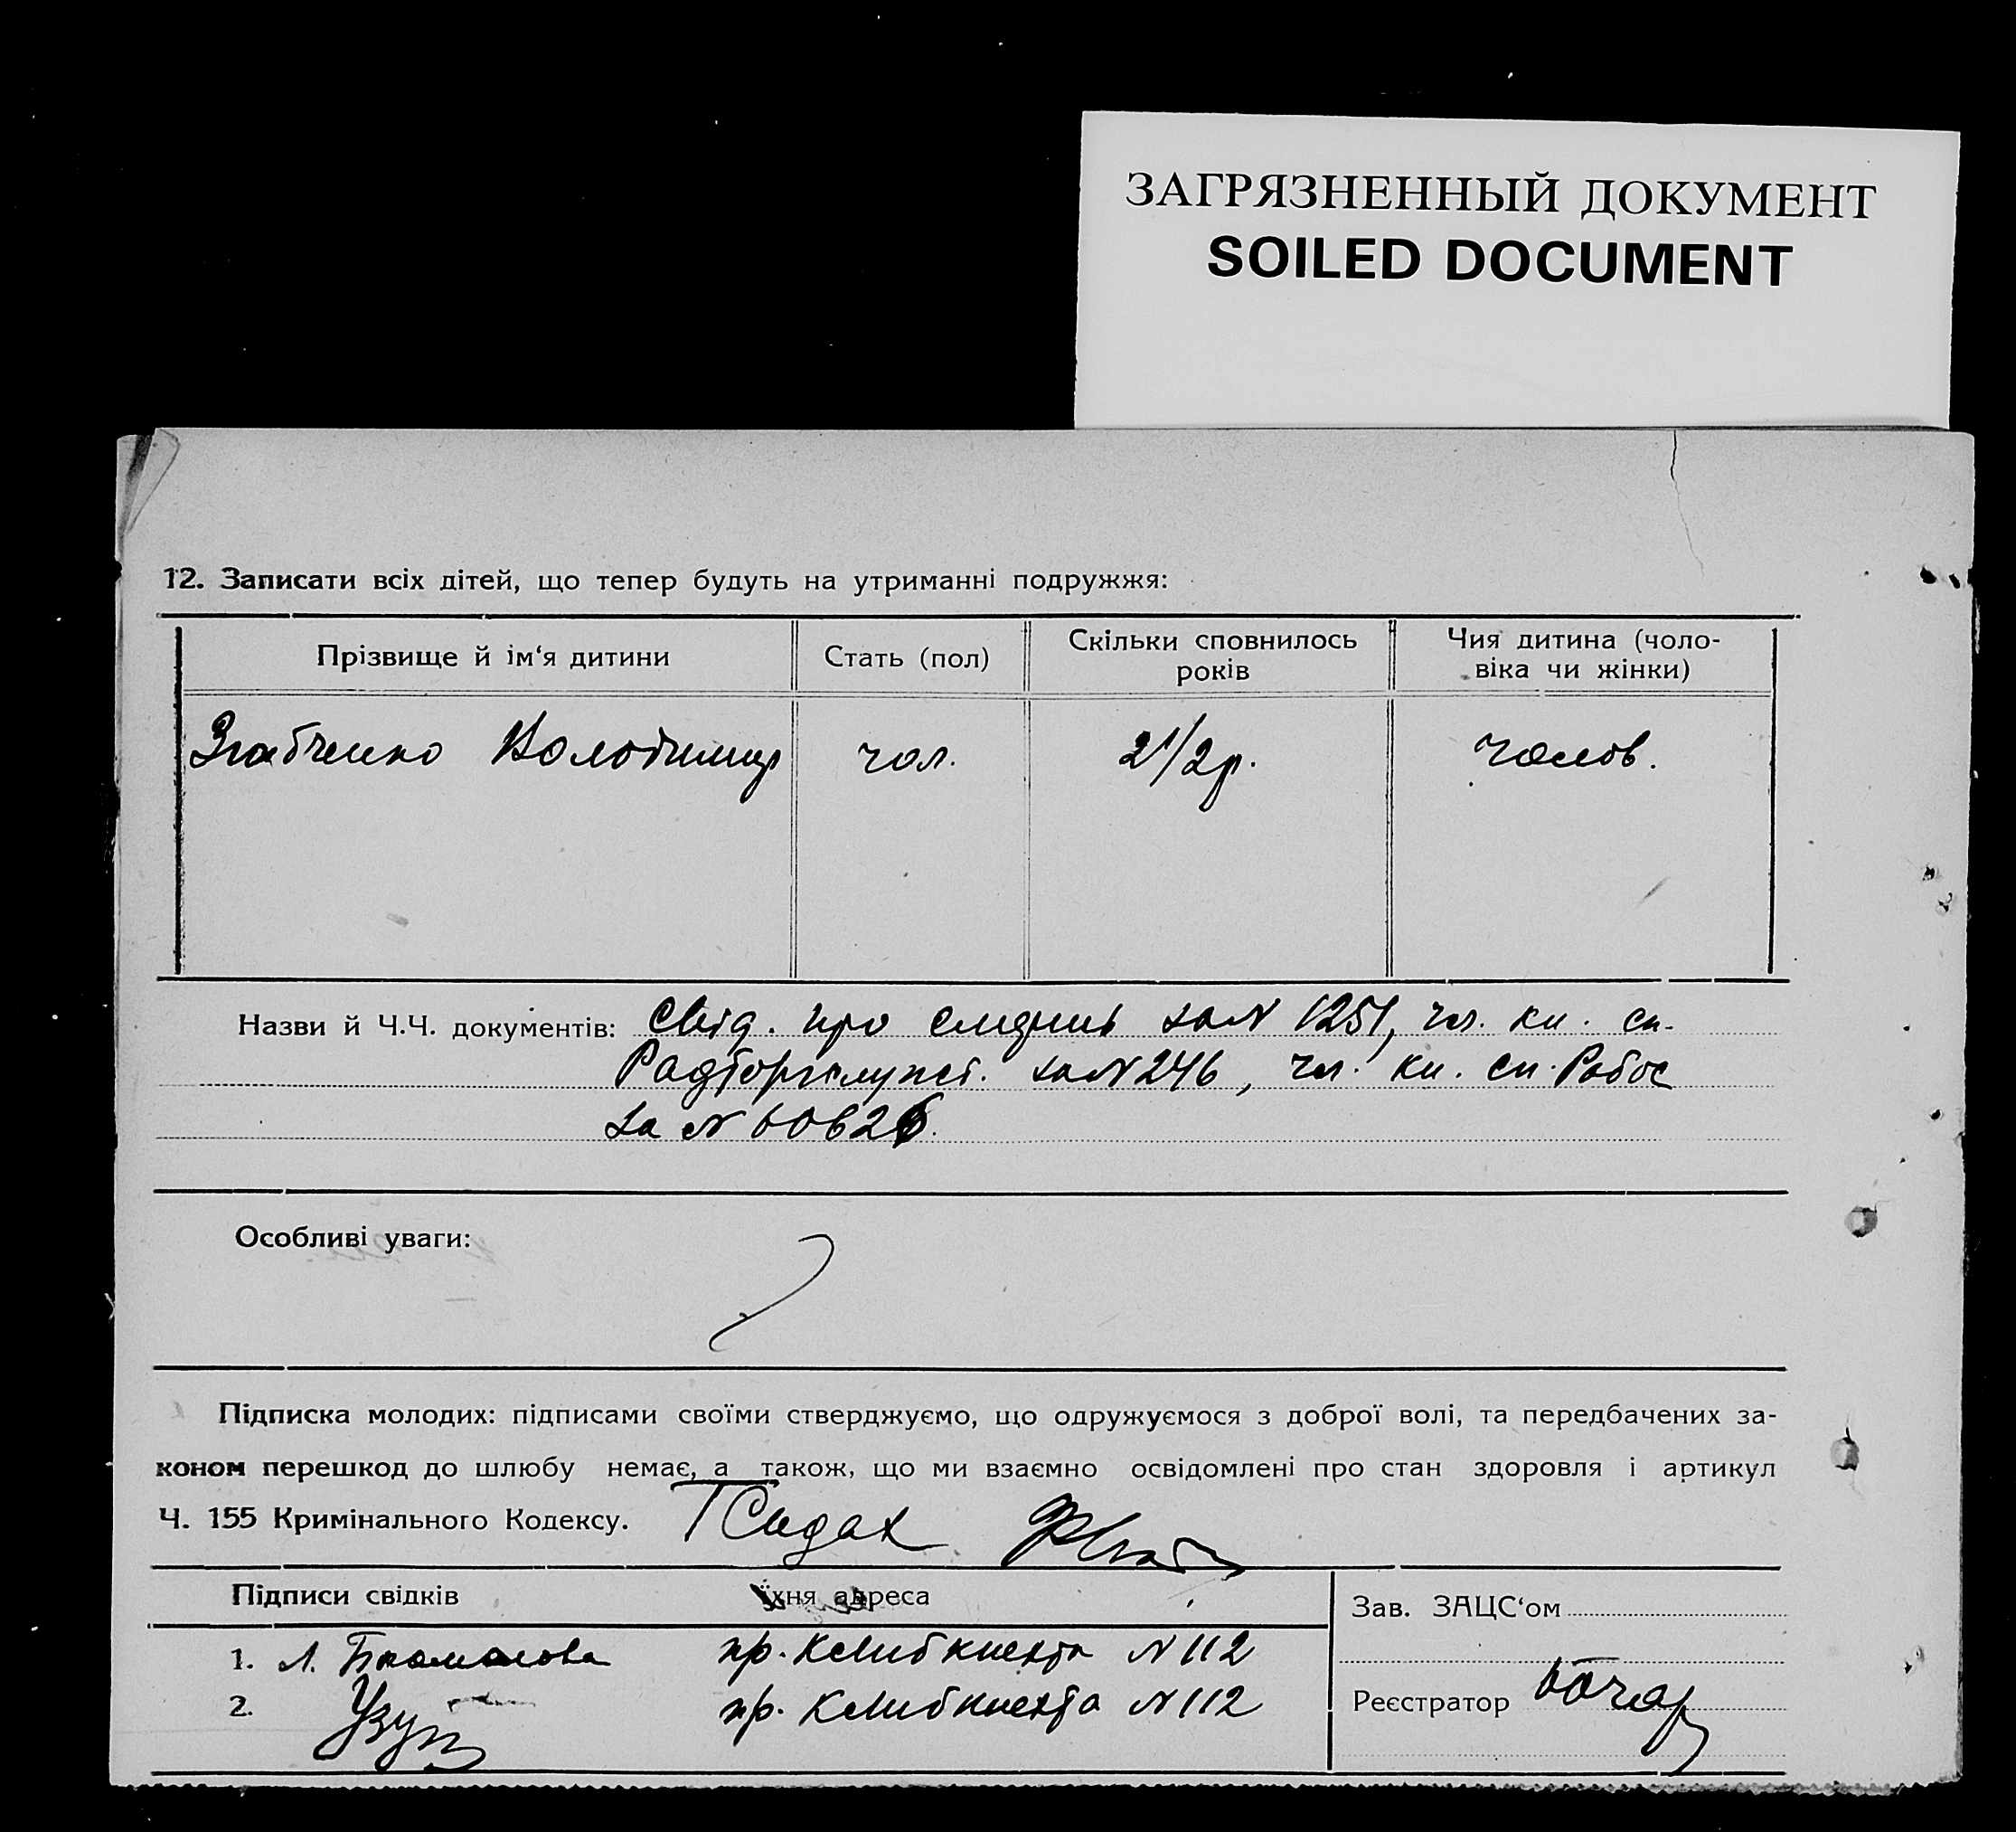 ЗАГРЯЗНЕННЫЙ ДОКУМЕНТ
SOILED DOCUMENT
12. Записати всіх дітей, що тепер будуть на утриманні подружжя:
Прізвище й ім‘я дитини Стать (пол) Скільки сповнилось років Чия дитина (чоловіка чи жінки)
Володимир чол. 2 1/2 р. чолов.
Назви й Ч.Ч. документів: Свід. про смерть за N 1251, чл. кн. сп.
за N 246, чл. кн. сп. Робос
за N
Особливі уваги:
Підписка молодих: підписами своїми стверджуємо, що одружуємося з доброї волі, та передбачених за-
коном перешкод до шлюбу немає, а також, що ми взаємно освідомлені про стан здоровля і артикул
Ч. 155 Кримінального Кодексу.
Підписи свідків Їхня адреса Зав. ЗАЦС‘ом
1. Л. пр. К. Либкнехта N 112
2. пр. К. Либкнехта N 112
Реєстратор